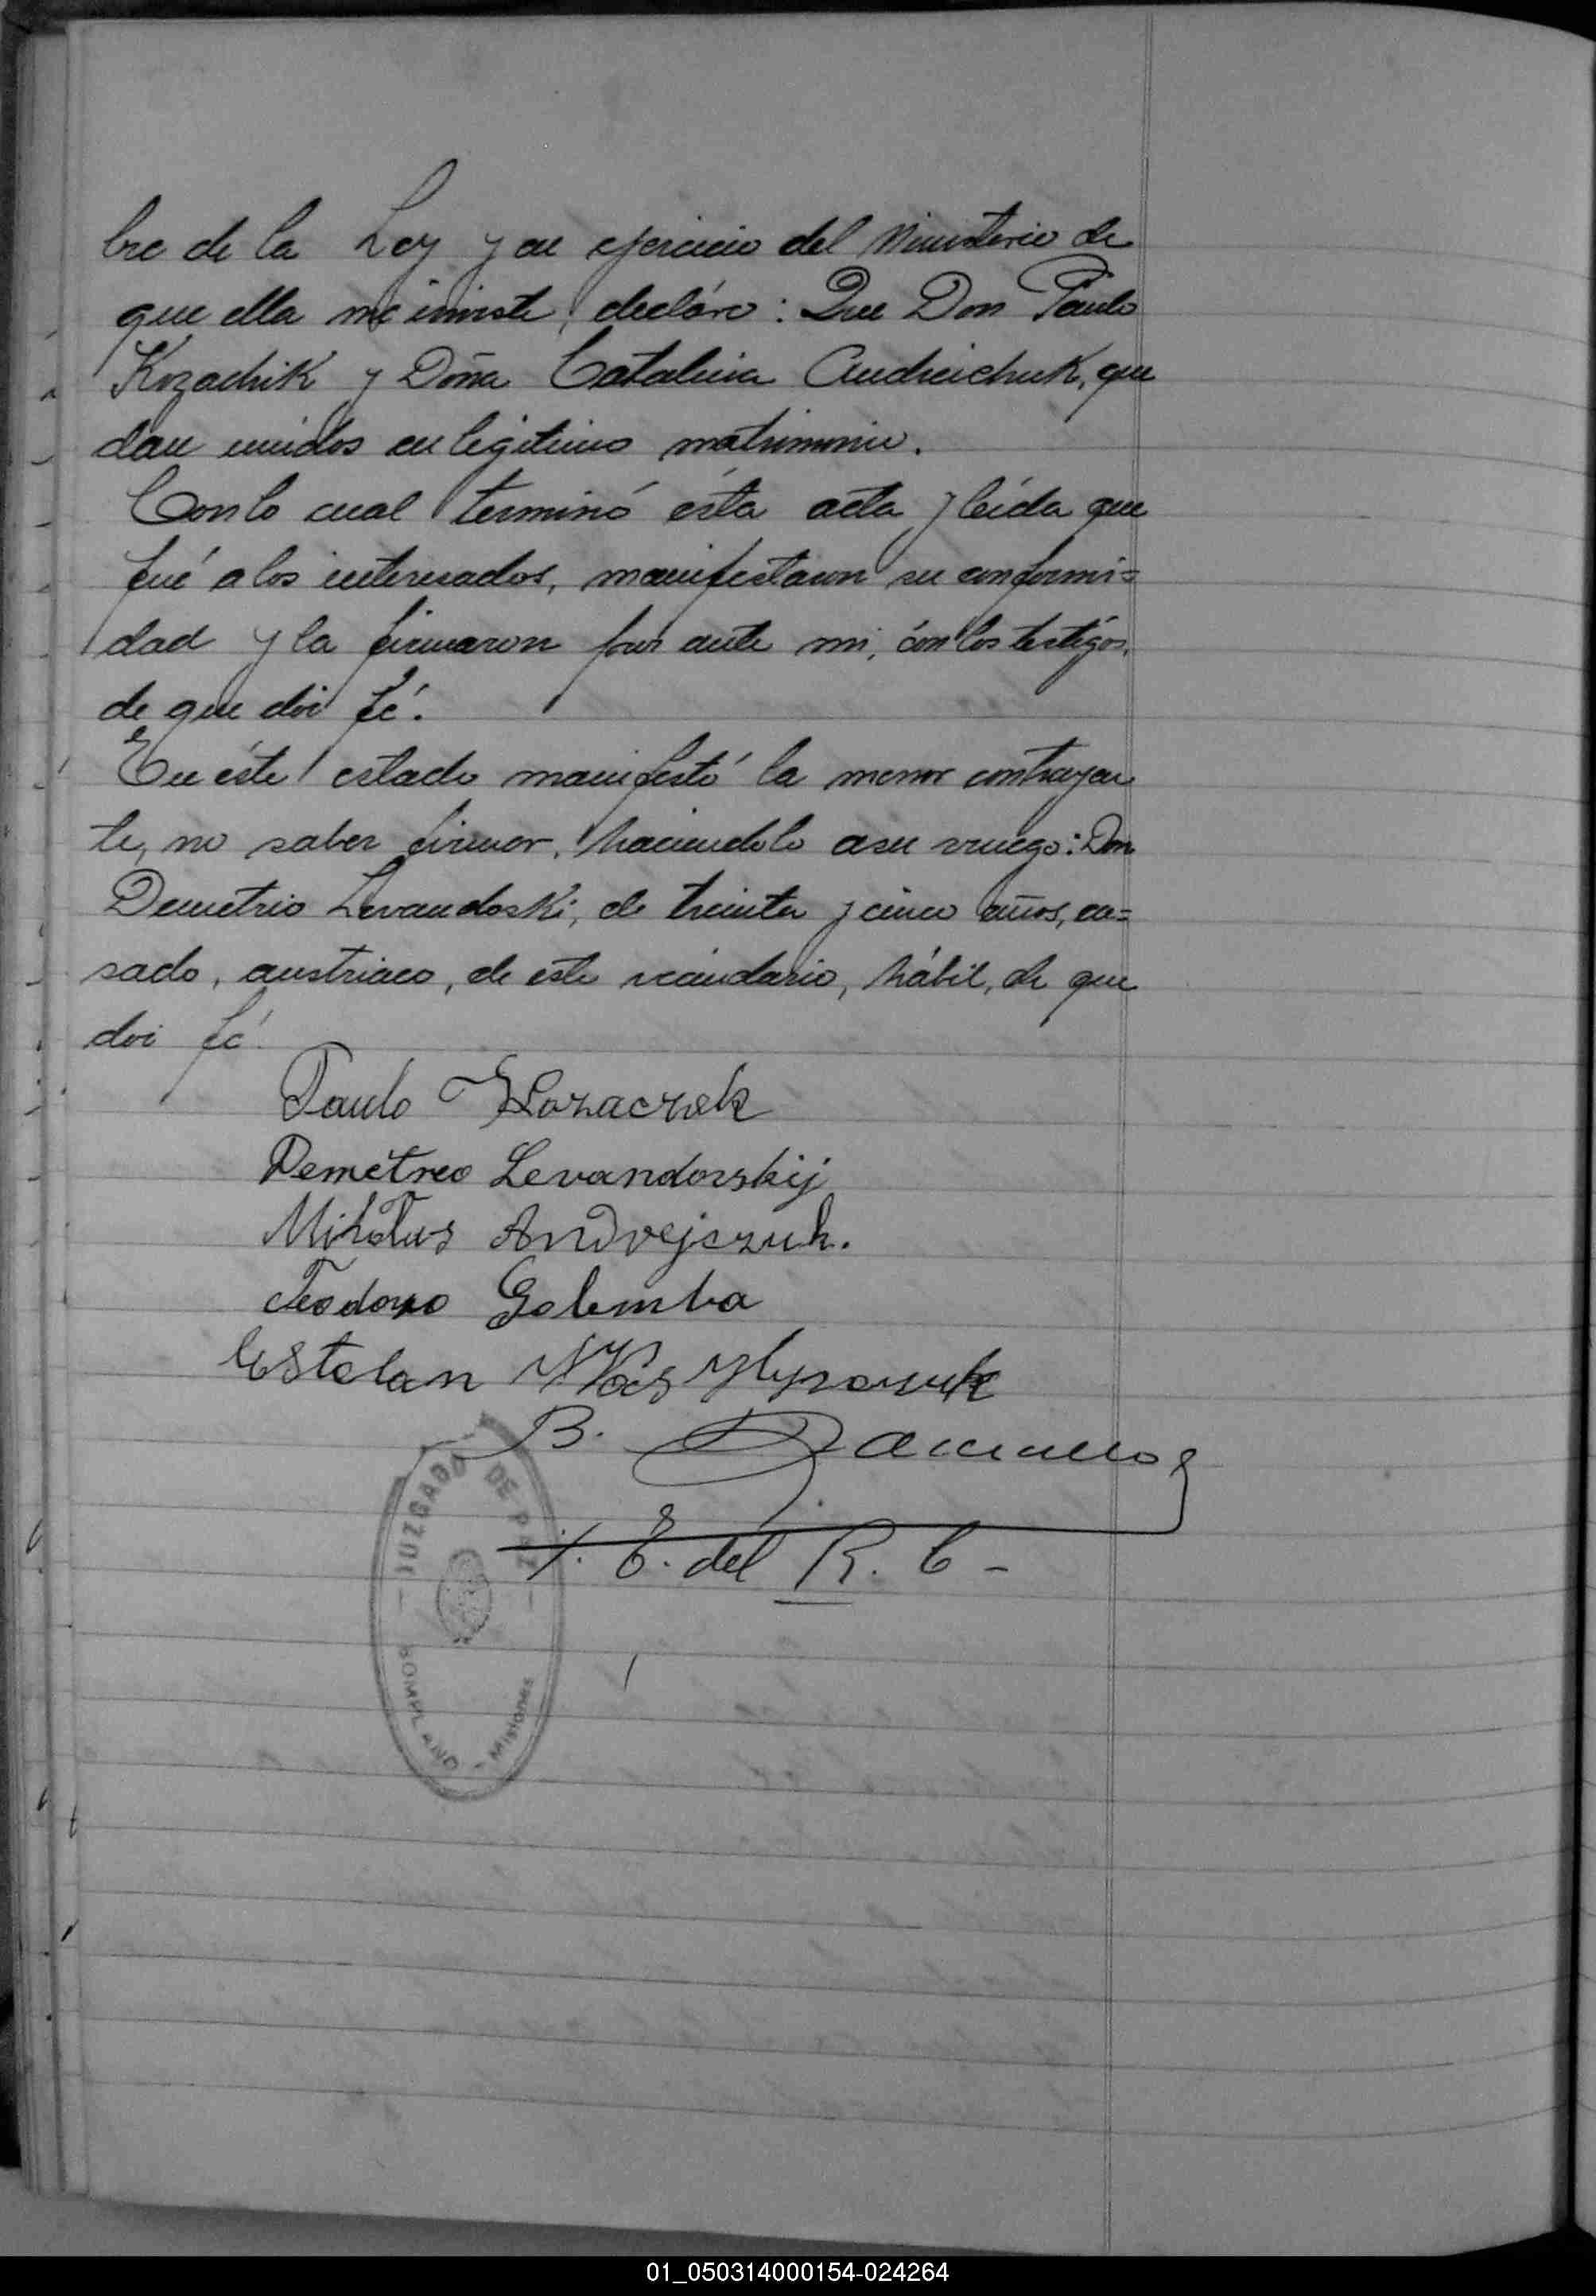 bre de la Ley y en ejercicio del Ministerio de
que ella me inviste, decláro: Que Don Paulo
Kozachik y Doña Catalina Andreichuk, que
dan unidos en legitimo matrimonio.
Con lo cual terminó ésta acta y leída que
fué a los interesados, manifestaron su conformi=
dad y la firmaron por ante mi, con los testigos,
de que doi fé.
En éste estado manifestó la menor contrayen
te, no saber firmar, haciendolo a su ruego: Don
Demetrio Levandoski, de treinta y cinco años, ca=
sado, austriaco, de este vecindario, hábil, de que
doi fé.
Paulo Kozaczek
Demetreo Levandorskij
Mikołus Andrejszuk.
Teodoro Golemba
Estelan
B.
E. del R. C -
JUZGADO DE PAZ
BOMPLAND - Misiones
01_050314000154-024264